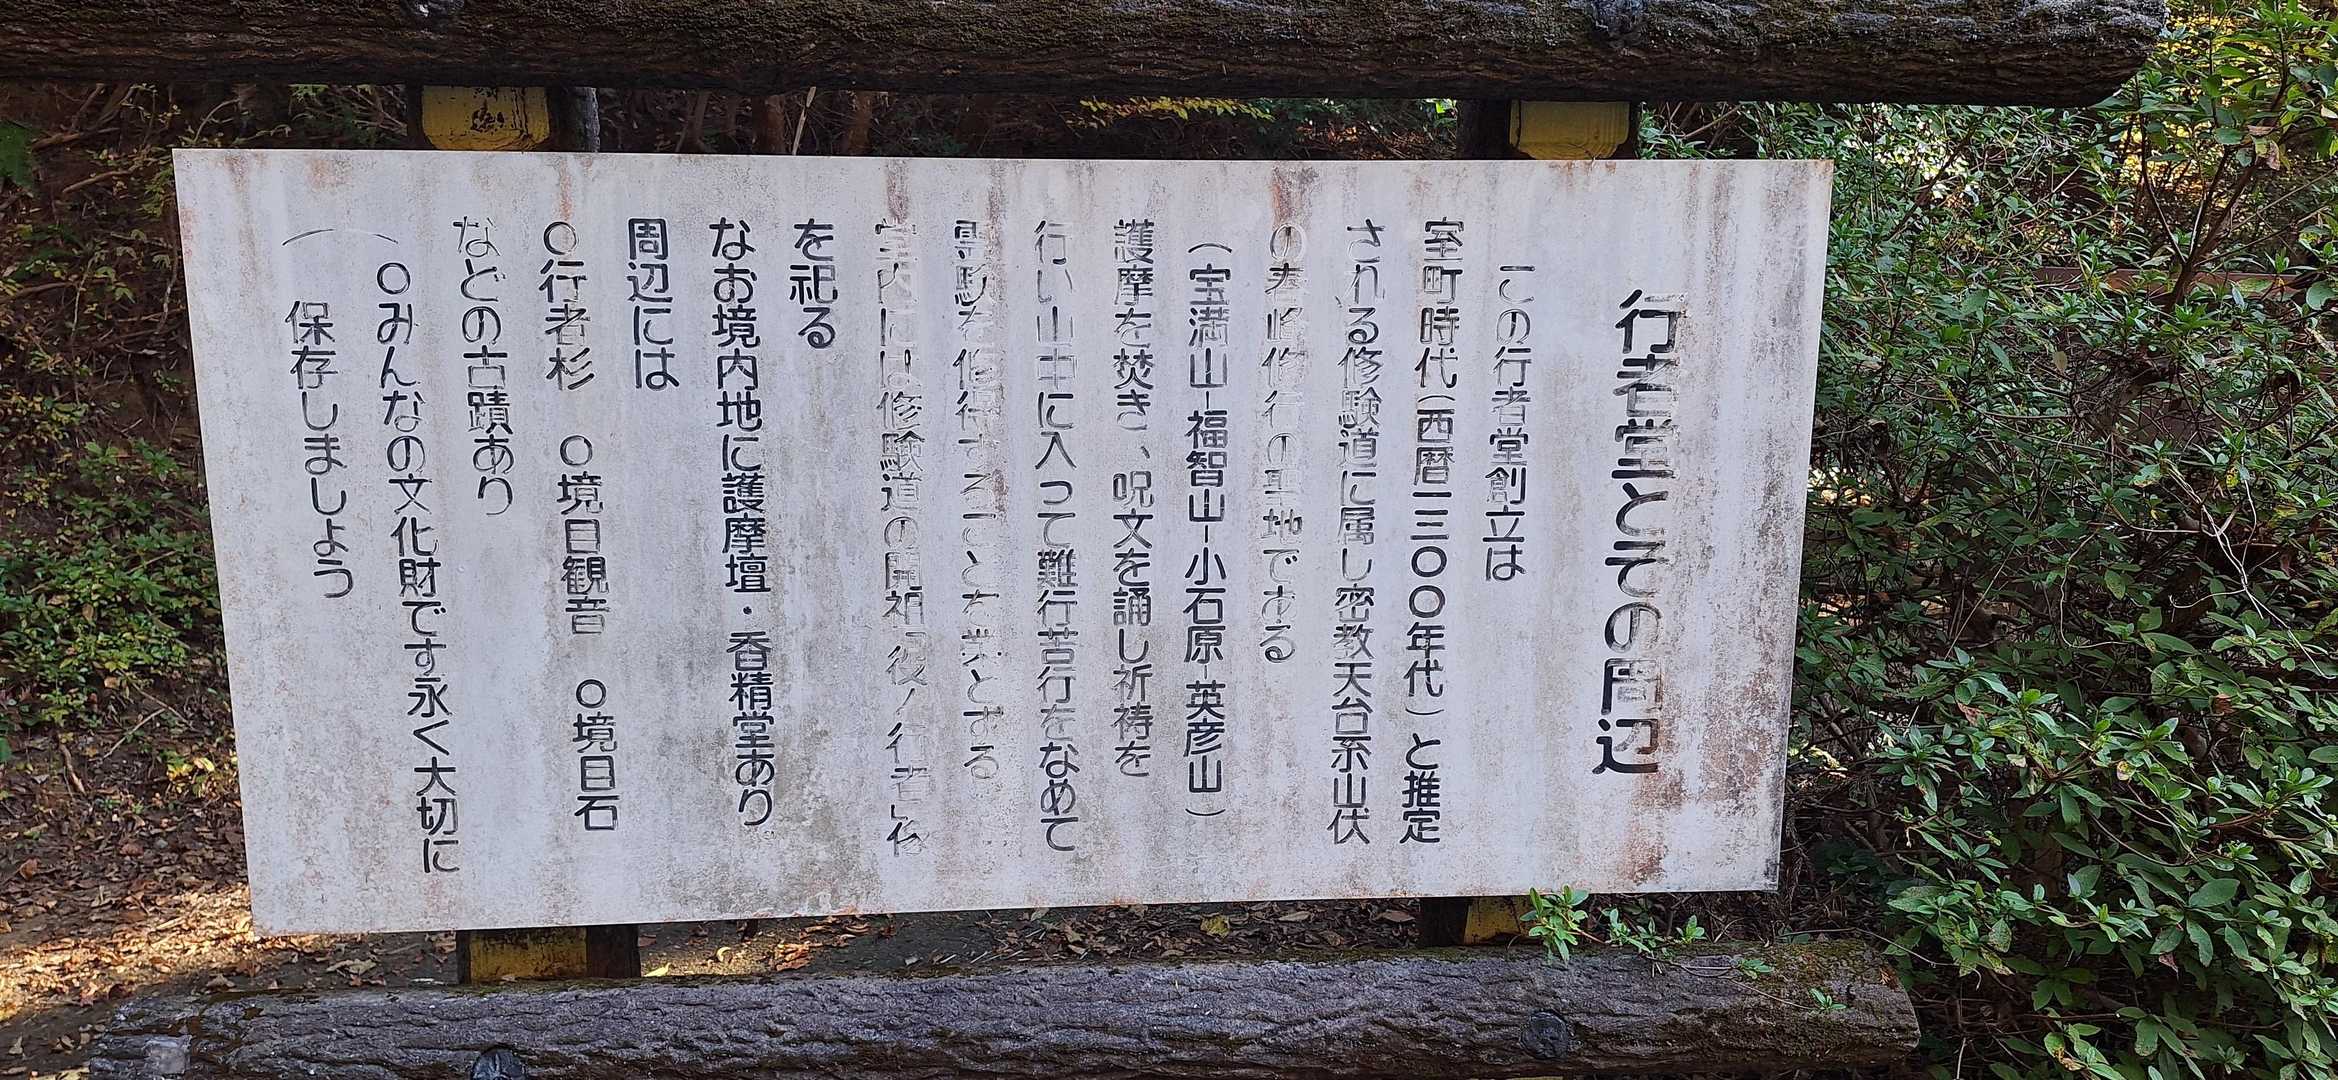 行者堂とその周辺
この行者堂創立は
室町時代(西暦一三〇〇年代)と推定
される修験道に属し密教天台系山伏
の春峰修行の聖地である
(宝満山-福智山-小石原-英彦山)
護摩を焚き、呪文を誦し祈祷を
行い山中に入って難行苦行をなめて
霊験を修得することを業とする
堂内には修験道の開祖役ノ行者
を祀る
なお境内地に護摩壇・香精堂あり
周辺には
〇行者杉 〇境目観音 〇境目石
などの古蹟あり
(〇みんなの文化財です永く大切に
( 保存しましょう